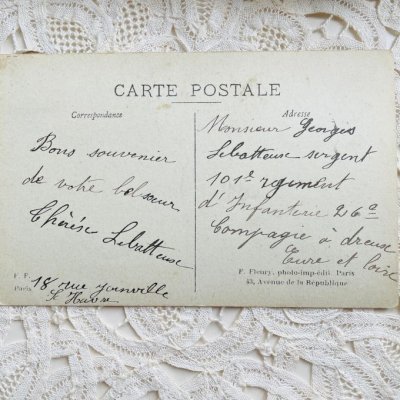 CARTE POSTALE
Correspondance
Bons souvenier
de votre bel sœur
Thérése Lebatteuse
18 rue Joinville
Le Havre
F. F.
Paris
Adresse
Monsieur Georges
Lebatteuse sergent
101e regiment
d'Infanterie 26e
Compagie à dreuse
Eure et loire
F. Fleury, photo-imp-édit. Paris
43, Avenue de la République